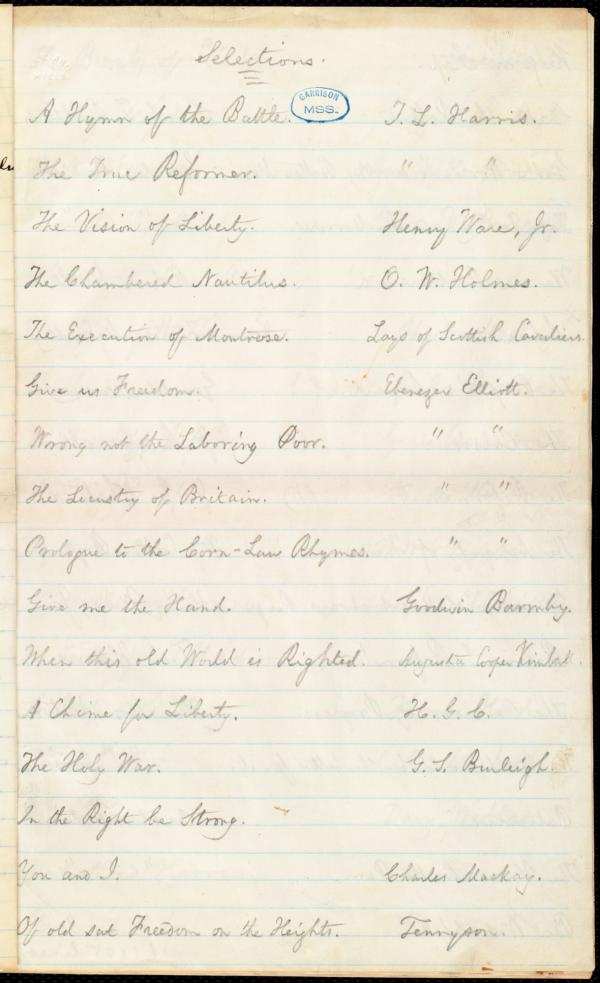 Selections.
GARRISON
MSS.
A Hymn of the Battle. T. L. Harris.
The True Reformer. " "
The Vision of Liberty. Henry Ware, Jr.
The Chambered Nautilus. O. W. Holmes.
The Execution of Montrose. Lays of Scottish Cavaliers.
Give us Freedom. Ebenezer Elliott.
Wrong not the Laboring Poor. " "
The of Britain. " "
Prologue to the Corn-Law Rhymes. " "
Give me the Hand. Goodwin Barmby.
When this old World is Righted. Augusta Cooper Kimball.
A Chime for Liberty. H. G. C.
The Holy War. G. S. Burleigh.
In the Right be Strong.
You and I. Charles Mackay.
Of old sat Freedom on the Heights. Tennyson.